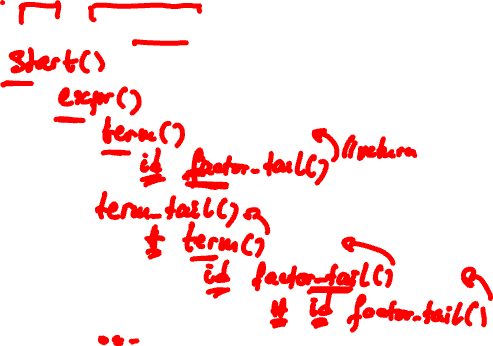 start()
expr()
term()
id factor_tail() //return
term_tail()
+ term()
id factor_tail()
* id factor_tail()
...